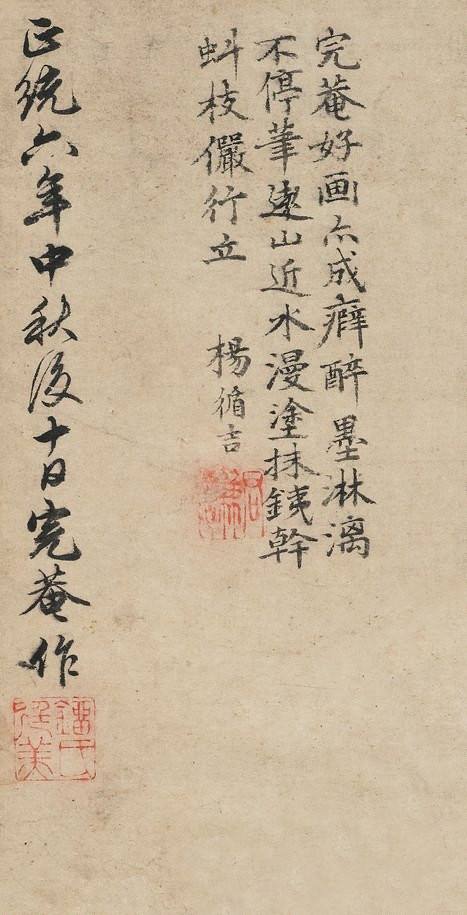 完菴好画亦成癖醉墨淋漓
不停筆遠山近水漫塗抹銕幹
蚪枝儼行立
楊循吉
君謙
正統六年中秋後十日完菴作
劉氏廷美